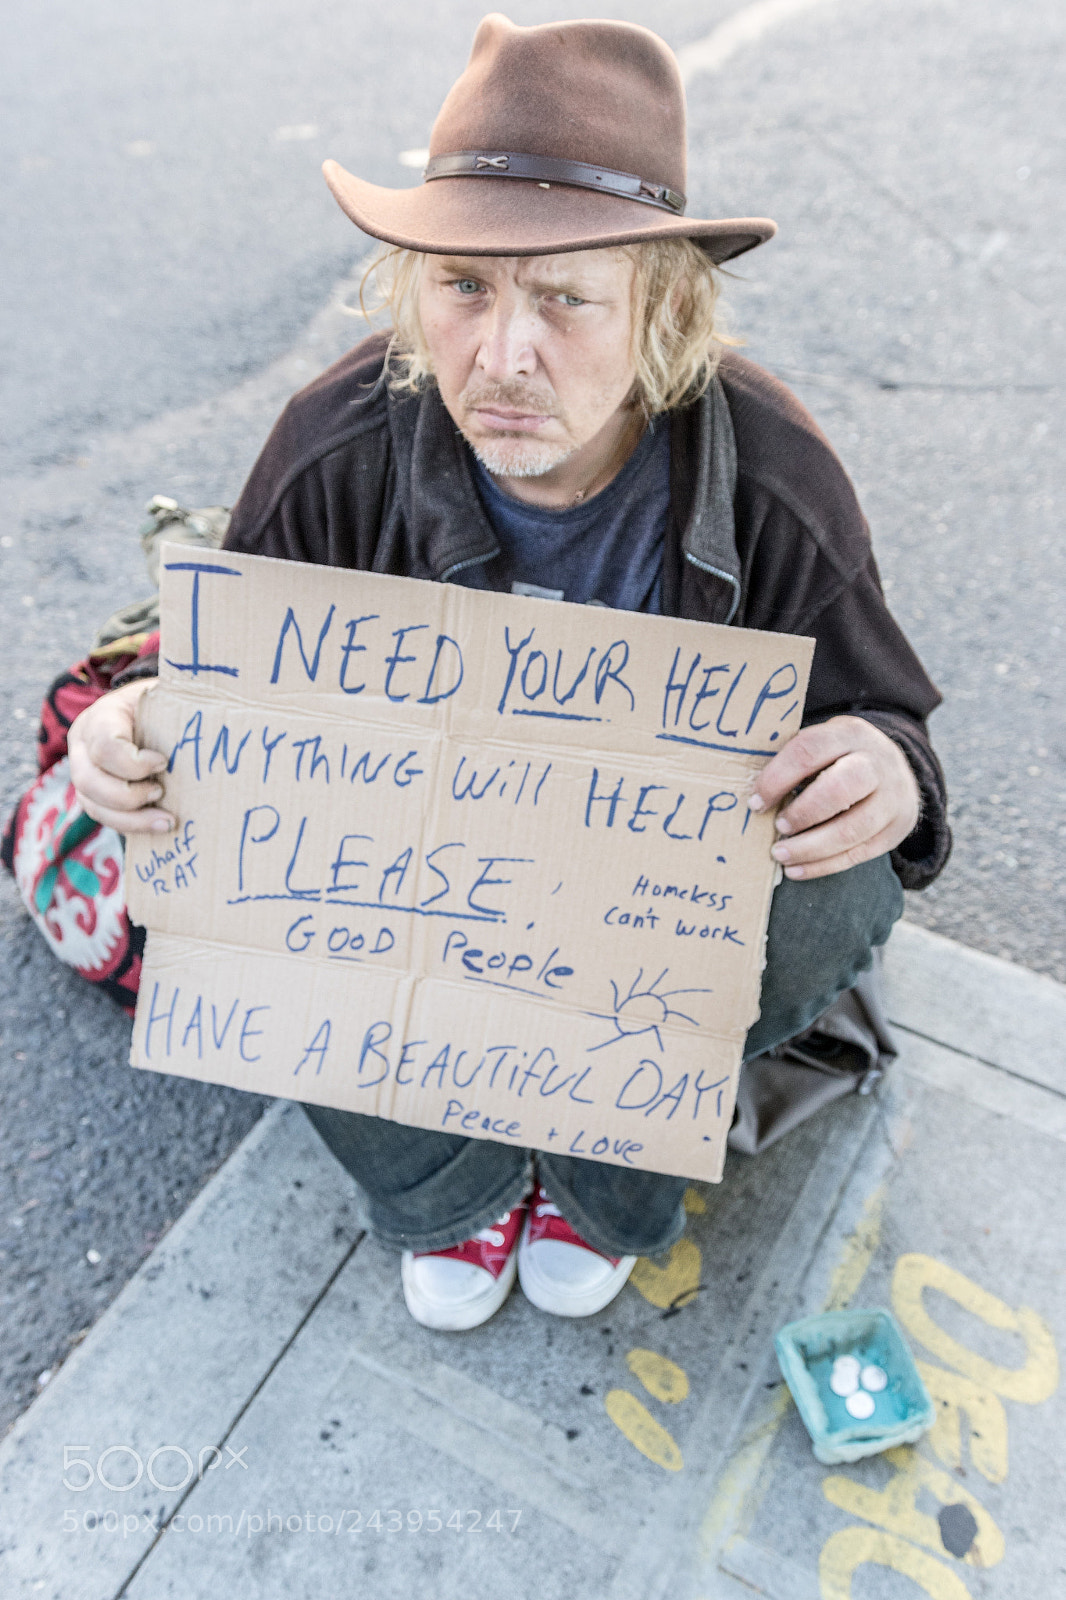 I NEED YOUR HELP!
ANYThING Will HELP!
Wharf
RAT
PLEASE!
Homeless
Can't work
GOOD People
HAVE A BEAUTIFUL DAY!
Peace + Love
500px
500px.com/photo/243954247